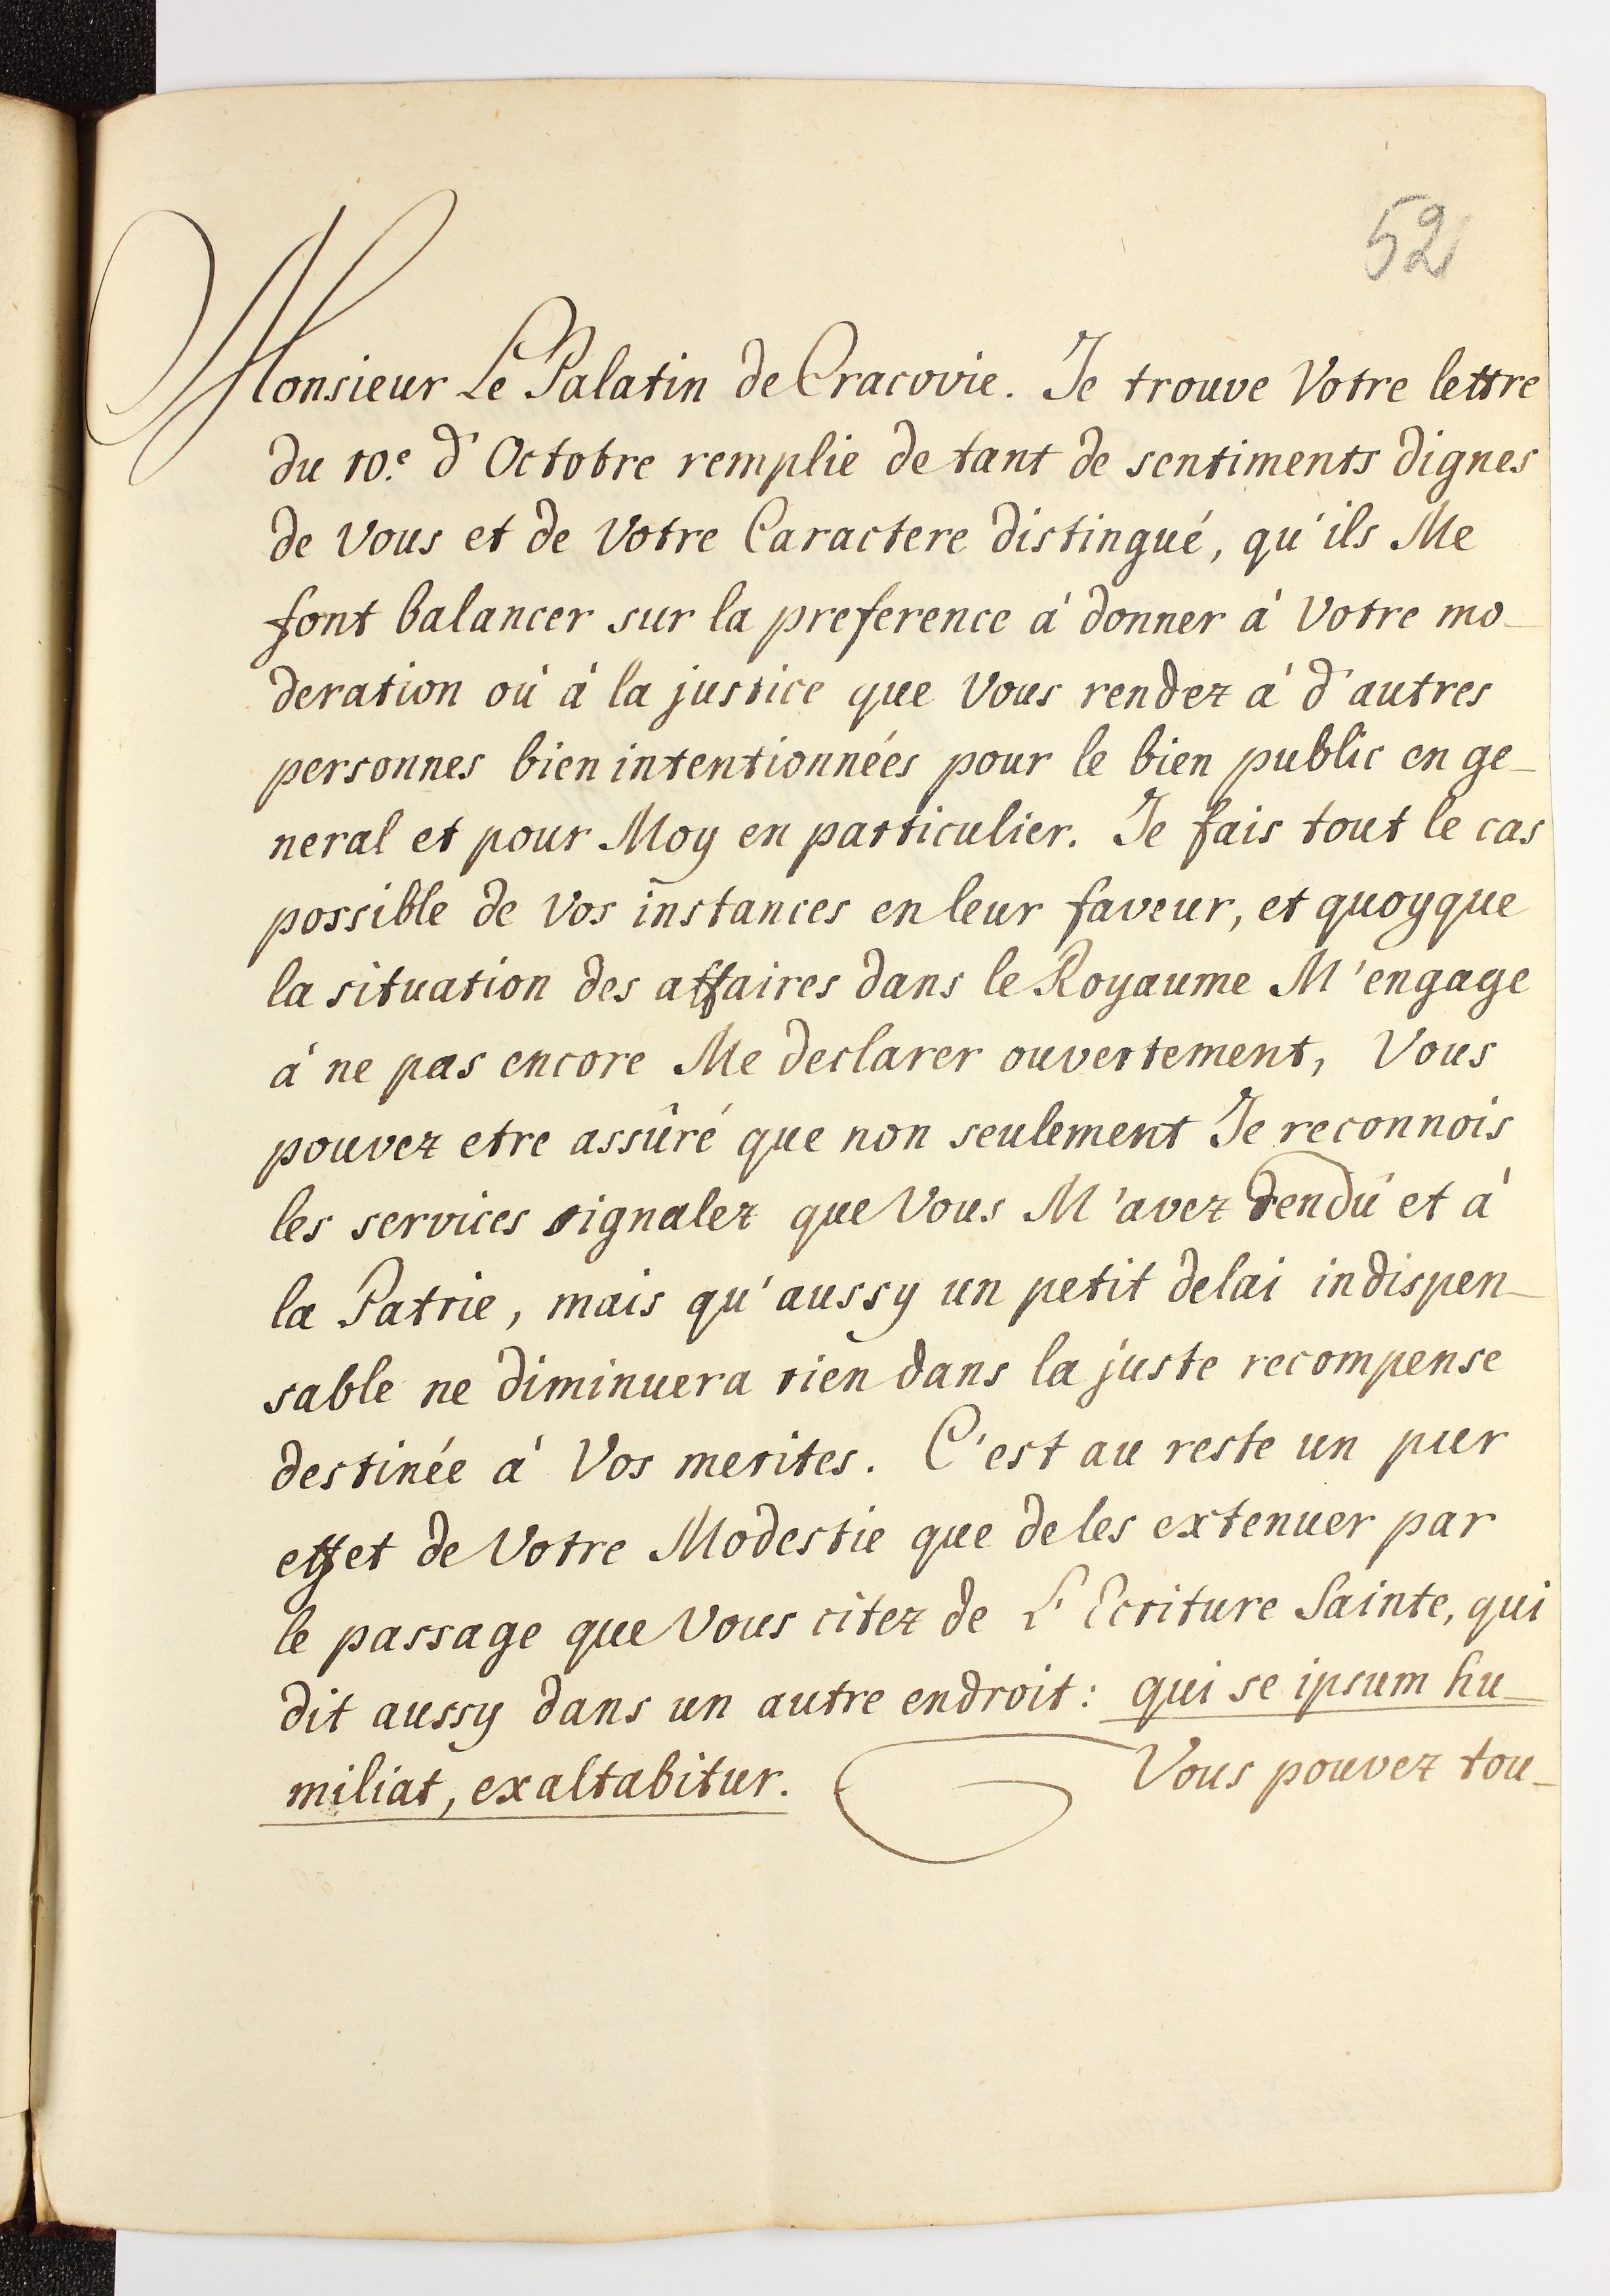 52
Monsieur Le Palatin de Cracovie. Je trouve Votre lettre
du 10.e d'Octobre remplie de tant de sentiments dignes
de Vous et de Votre Caractere distingué, qu'ils Me
font balancer sur la preference à donner à Votre mo-
deration où à la justice que Vous rendez à d'autres
personnes bien intentionnées pour le bien public en ge-
neral et pour Moy en particulier. Je fais tout le cas
possible de Vos instances en leur faveur, et quoyque
la situation des affaires dans le Royaume M'engage
à ne pas encore Me declarer ouvertement, Vous
pouvez etre assûré que non seulement Je reconnois
les services signalez que Vous M'avez rendû et à
la Patrie, mais qu'aussy un petit delai indispen-
sable ne diminuera rien dans la juste recompense
destinée à Vos merites. C'est au reste un pur
effet de Votre Modestie que de les extenuer par
le passage que Vous citez de L'Ecriture Sainte, qui
dit aussy dans un autre endroit: qui se ipsum hu-
miliat, exaltabitur. Vous pouvez tou-